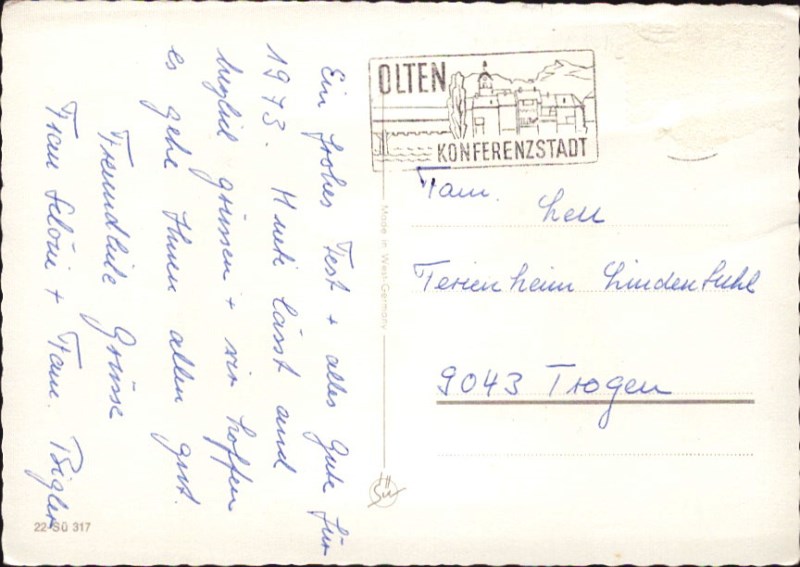 Ein frohes Fest + alles Gute für
1973. Mueti lässt auch
herzlich grüssen + wir hoffen
es gehe Ihnen allen gut.
Freundliche Grüsse
Frau Schöni + Fam. Bigler
22-Sü 317
Made in West-Germany
Sü
OLTEN
KONFERENZSTADT
Fam.
Ferienheim Lindenbühl
9043 Trogen